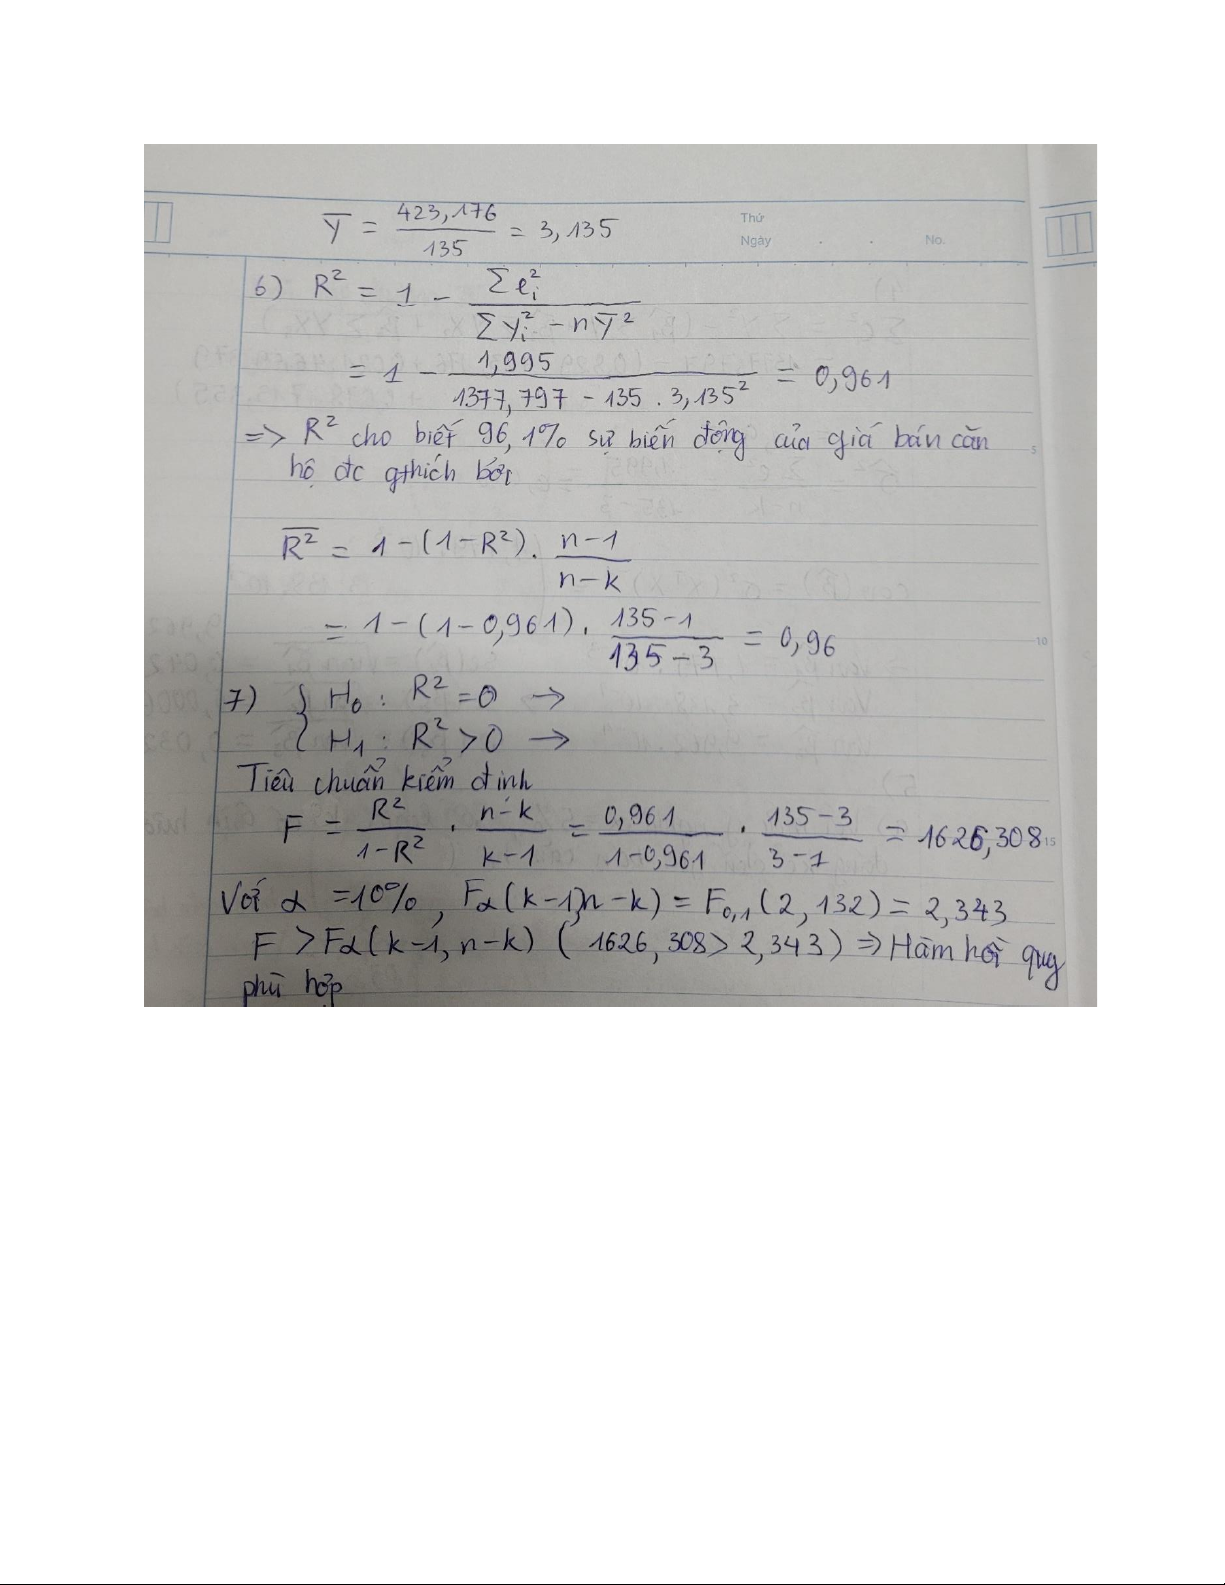 Y̅ = 423,176 / 135 = 3,135
Thứ
Ngày . . No.
6) R² = 1 - Σe²ᵢ / (Σy²ᵢ - nY̅²)
= 1 - 1,995 / (1377,797 - 135 . 3,135²) = 0,961
=> R² cho biết 96,1% sự biến động của giá bán căn
hộ đc gthích bởi
5
R̅² = 1-(1-R²). (n-1)/(n-k)
= 1-(1-0,961). (135-1)/(135-3) = 0,96
10
7) { H₀ : R² = 0 →
H₁ : R² > 0 →
Tiêu chuẩn kiểm định
F = R²/(1-R²) . (n-k)/(k-1) = 0,961/(1-0,961) . (135-3)/(3-1) = 1626,308
15
Với α = 10%, Fα(k-1,n-k) = F₀,₁(2,132) = 2,343
F > Fα(k-1, n-k) (1626,308 > 2,343) => Hàm hồi quy
phù hợp